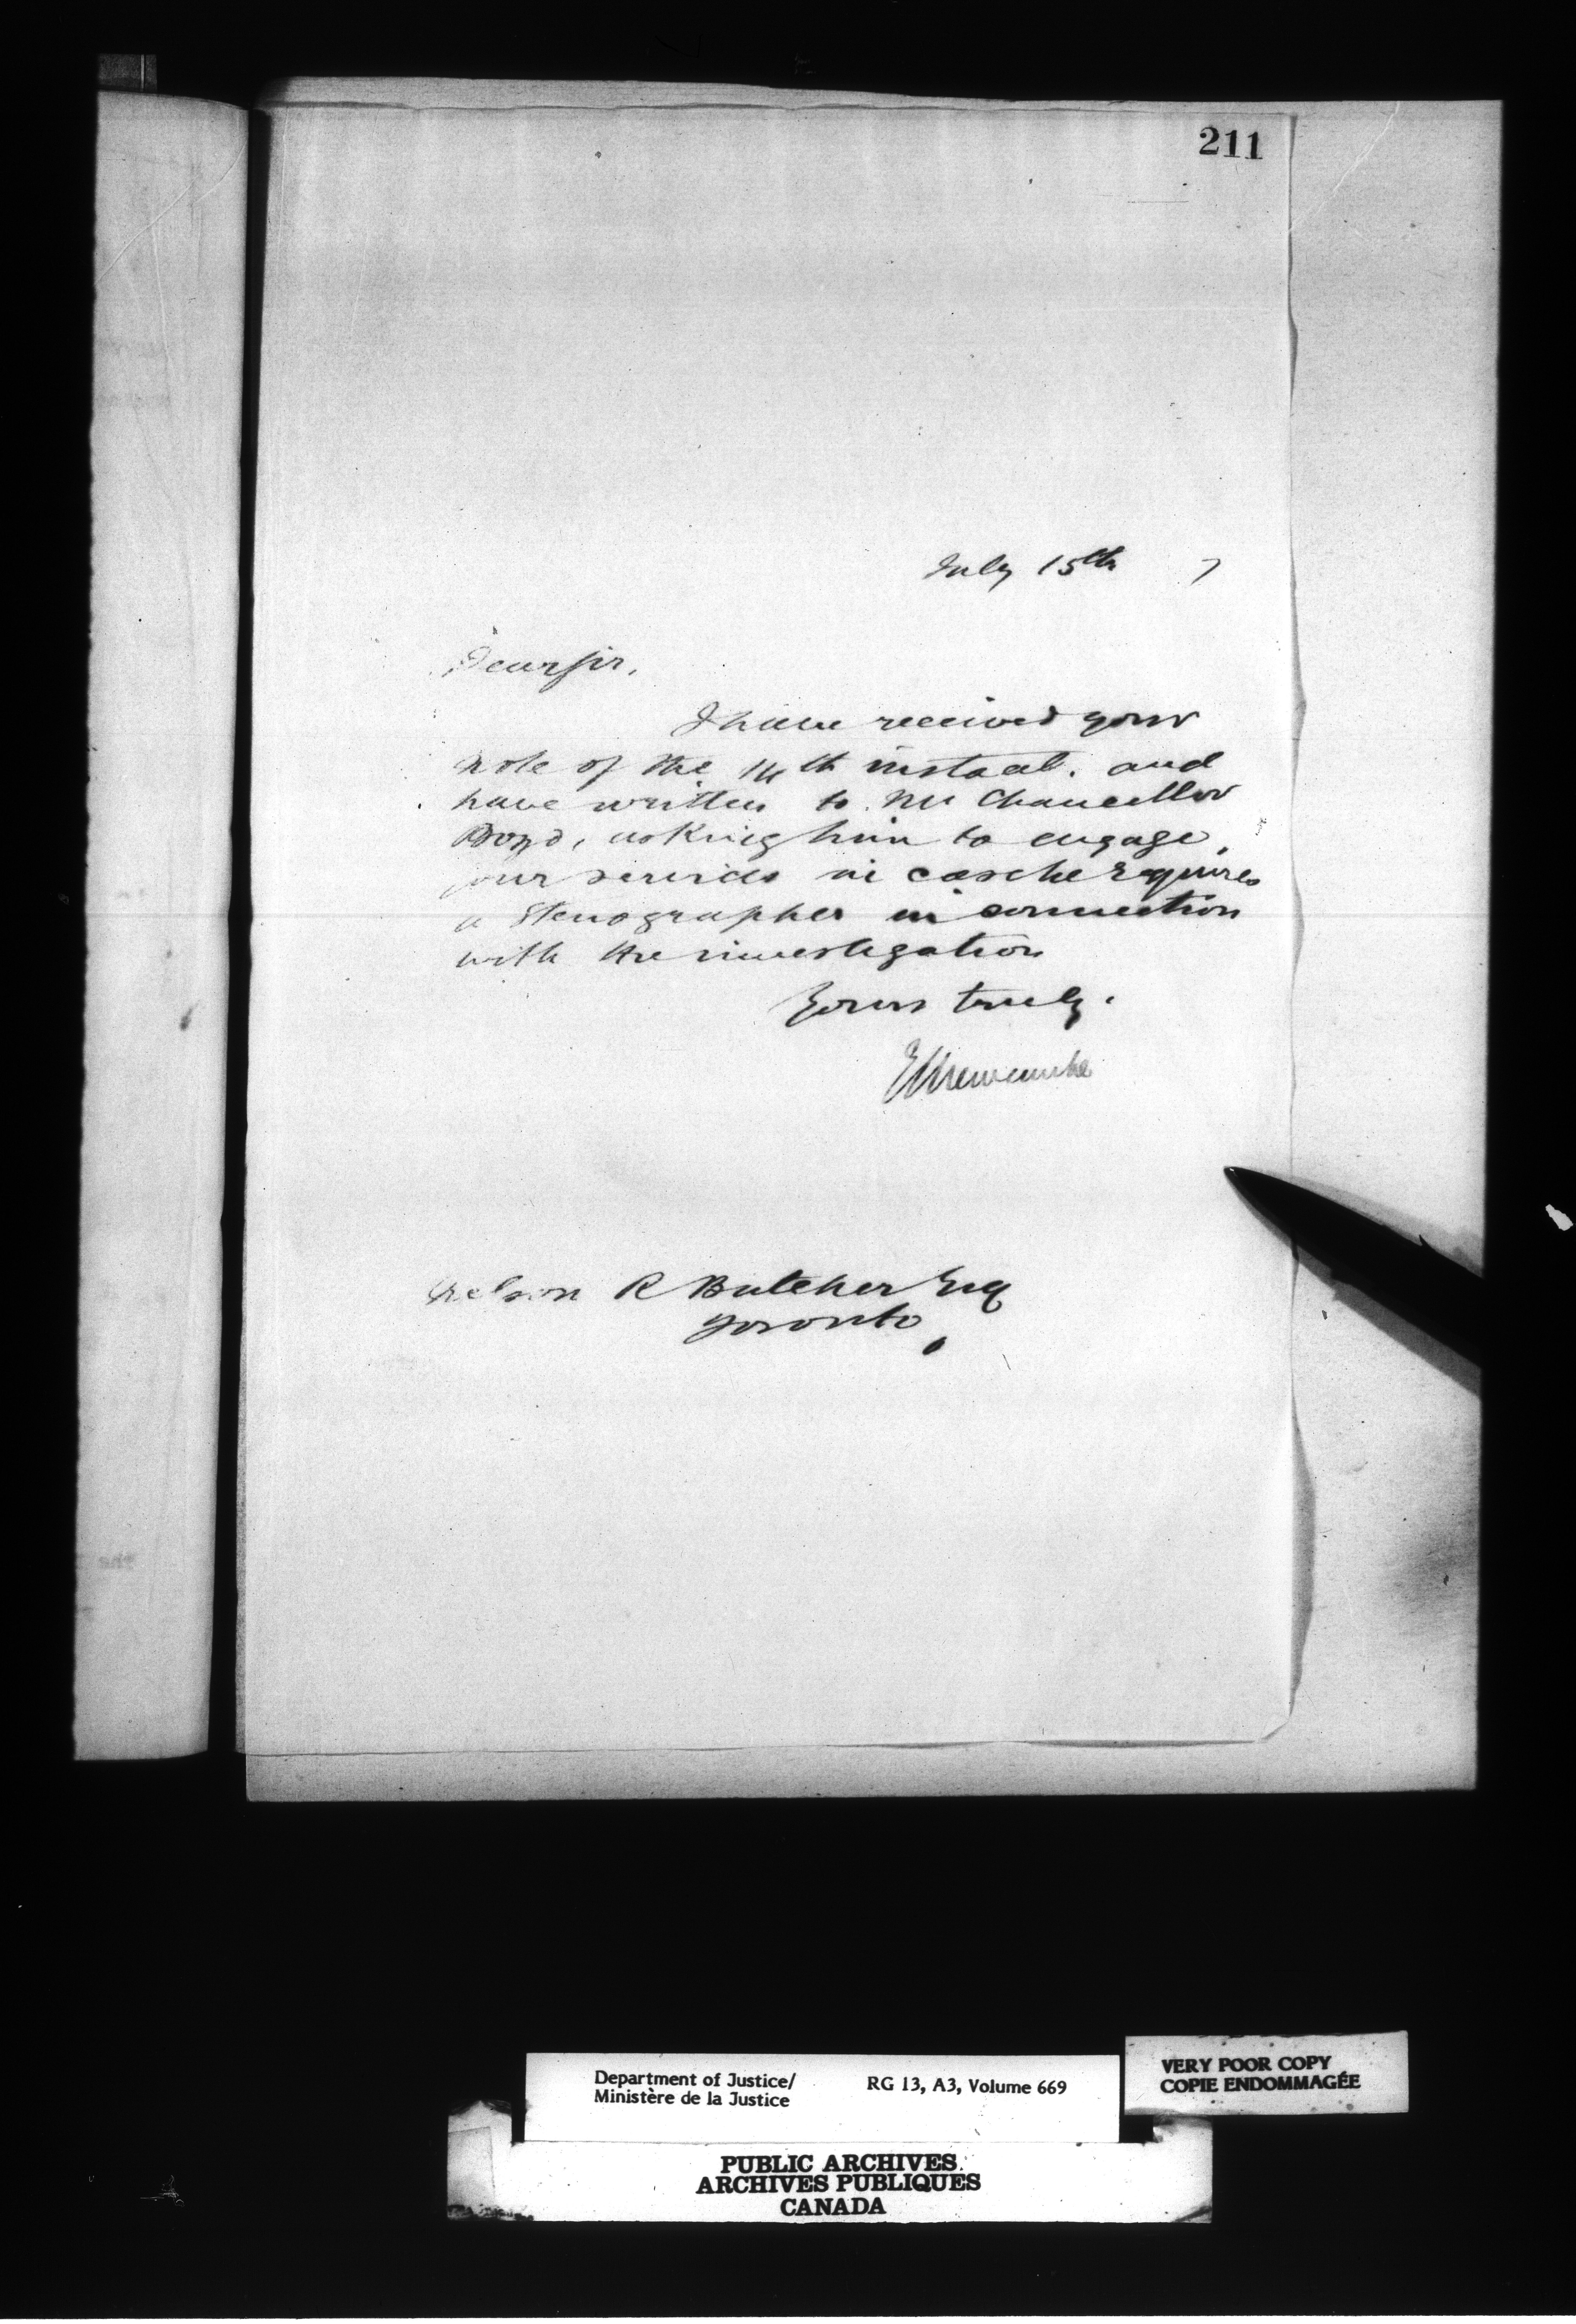 211
July 15th 7
Dear Sir,
I have received your
note of the 14th instant. and
have written to Mr Chancellor
Boyd, asking him to engage,
your services in case he requires
a Stenographer in connection
with the investigation
Yours truly.
E L Newcombe
Nelson R Butcher Esq
Toronto
Department of Justice/ RG 13, A3, Volume 669
Ministère de la Justice
VERY POOR COPY
COPIE ENDOMMAGÉE
PUBLIC ARCHIVES
ARCHIVES PUBLIQUES
CANADA